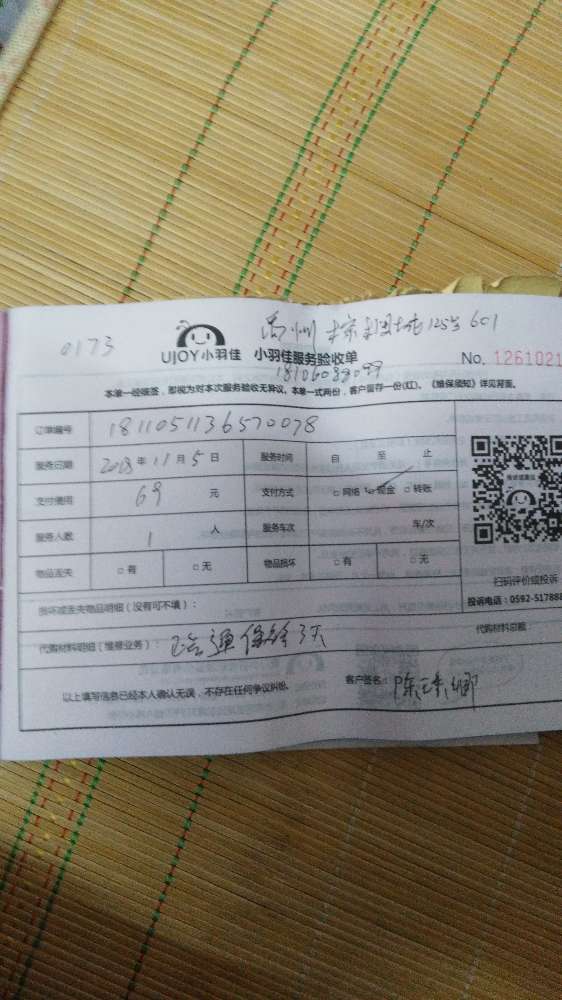 0173
UJOY小羽佳 小羽佳服务验收单
125号601
18106088099
No. 1261021
本单一经账签，即视为对本次服务验收无异议。本单一式两份，客户留存一份(红)。《维保须知》详见背面。
订单编号 1811051136570078
服务日期 2018年11月5日 服务时间 自 至 止
支付费用 69 元 支付方式 □网络 □现金 □转账
服务人数 1 人 服务车次 车/次
物品丢失 □有 □无 物品损坏 □有 □无
扫码评价或投诉
投诉电话：0592-517888
损坏或丢失物品明细（没有可不填）：
代购材料明细（维修业务）： 疏通保修3天
代购材料总额：
以上填写信息已经本人确认无误，不存在任何争议纠纷。 客户签名：